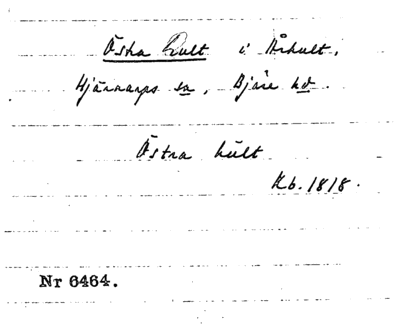 Östra Hult i Århult,
Hjärnarps sn, Bjäre hd.
Östra hult
Kb. 1818.
Nr 6464.